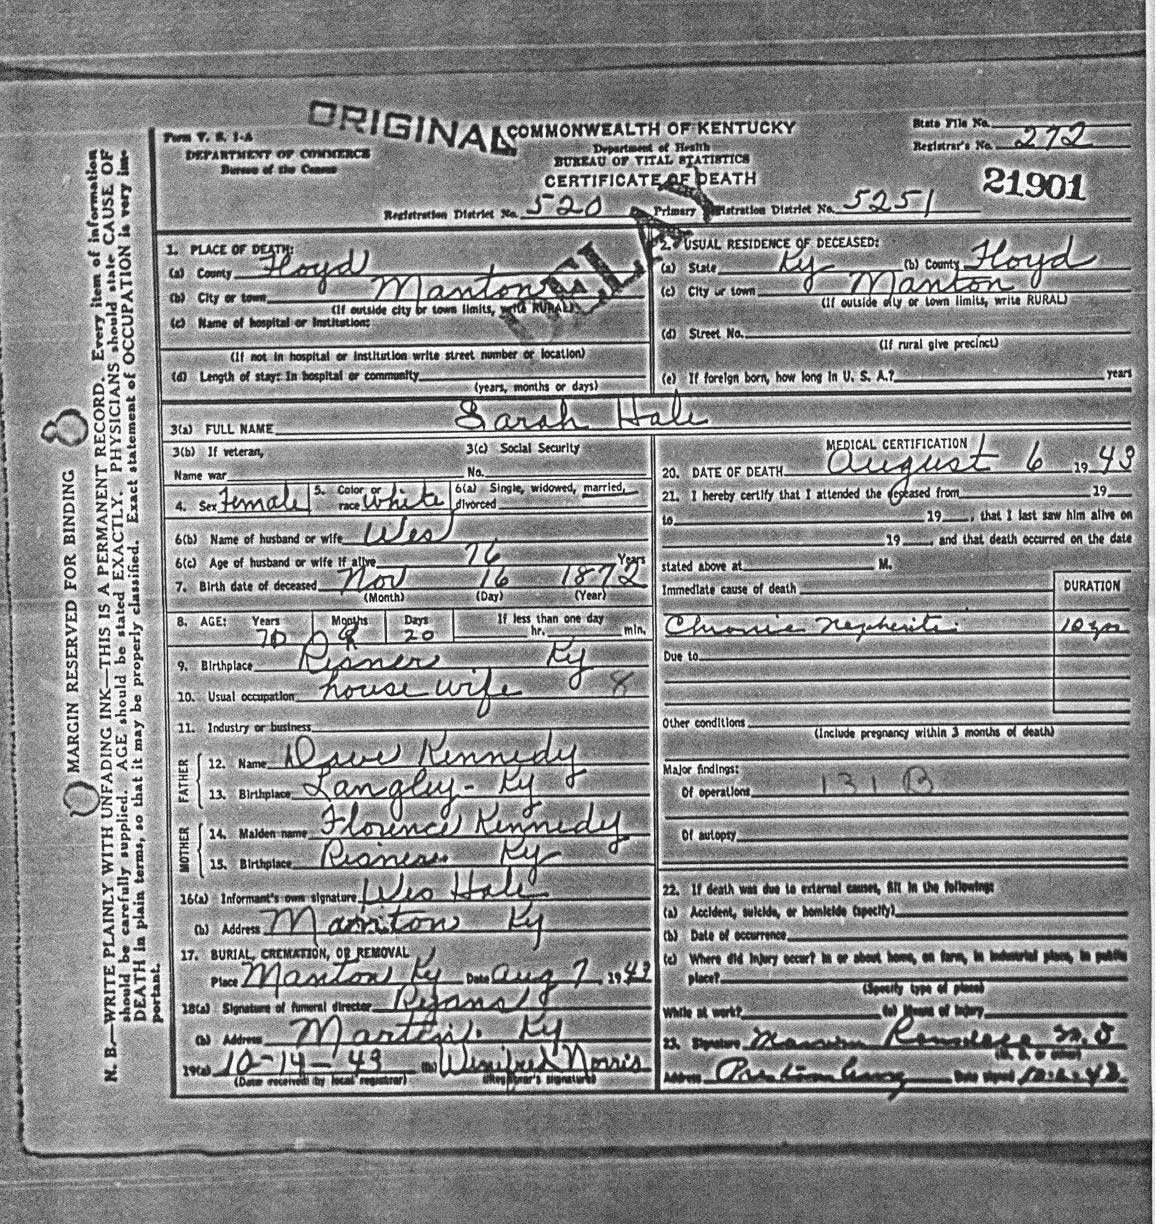 ORIGINAL
Form V. S. 1-A
DEPARTMENT OF COMMERCE
Bureau of the Census
COMMONWEALTH OF KENTUCKY
Department of Health
BUREAU OF VITAL STATISTICS
CERTIFICATE OF DEATH
State File No.
Registrar's No. 272
21901
Registration District No. 520 Primary Registration District No. 5251
DELAY
MARGIN RESERVED FOR BINDING
N. B.—WRITE PLAINLY WITH UNFADING INK—THIS IS A PERMANENT RECORD. Every item of information
should be carefully supplied. AGE should be stated EXACTLY. PHYSICIANS should state CAUSE OF
DEATH in plain terms, so that it may be properly classified. Exact statement of OCCUPATION is very im-
portant.
1. PLACE OF DEATH:
(a) County Floyd
(b) City or town Manton
(If outside city or town limits, write RURAL)
(c) Name of hospital or institution:
(If not in hospital or institution write street number or location)
(d) Length of stay: In hospital or community
(years, months or days)
2. USUAL RESIDENCE OF DECEASED:
(a) State Ky (b) County Floyd
(c) City or town Manton
(If outside city or town limits, write RURAL)
(d) Street No.
(If rural give precinct)
(e) If foreign born, how long in U. S. A.? years
3(a) FULL NAME Sarah Hale
3(b) If veteran,
Name war
3(c) Social Security
No.
4. Sex Female 5. Color or race White 6(a) Single, widowed, married, divorced
6(b) Name of husband or wife Wes
6(c) Age of husband or wife if alive 76 Years
7. Birth date of deceased Nov 16 1872
(Month) (Day) (Year)
8. AGE: Years Months Days If less than one day
70 8 20 hr. min.
9. Birthplace Risner Ky
10. Usual occupation house wife 8
11. Industry or business
FATHER
12. Name Dave Kennedy
13. Birthplace Langley - Ky
MOTHER
14. Maiden name Florence Kennedy
15. Birthplace Risner Ky
16(a) Informant's own signature Wes Hale
(b) Address Manton Ky
17. BURIAL, CREMATION, OR REMOVAL
Place Manton Ky Date Aug 7 1943
18(a) Signature of funeral director Ryans
(b) Address Martin Ky
19(a) 10-14-43 (b) Winifred Norris
(Date received by local registrar) (Registrar's signature)
MEDICAL CERTIFICATION
20. DATE OF DEATH August 6 1943
21. I hereby certify that I attended the deceased from 19
to 19 , that I last saw him alive on
19 , and that death occurred on the date
stated above at M.
Immediate cause of death DURATION
Chronic Nephritis 10 yrs
Due to
Other conditions
(Include pregnancy within 3 months of death)
Major findings:
Of operations 131 B
Of autopsy
22. If death was due to external causes, fill in the following:
(a) Accident, suicide, or homicide (specify)
(b) Date of occurrence
(c) Where did injury occur? In or about home, on farm, in industrial place, in public
place?
(Specify type of place)
While at work? (e) Means of Injury
23. Signature M D
(M. D. or other)
Address Prestonsburg Date signed